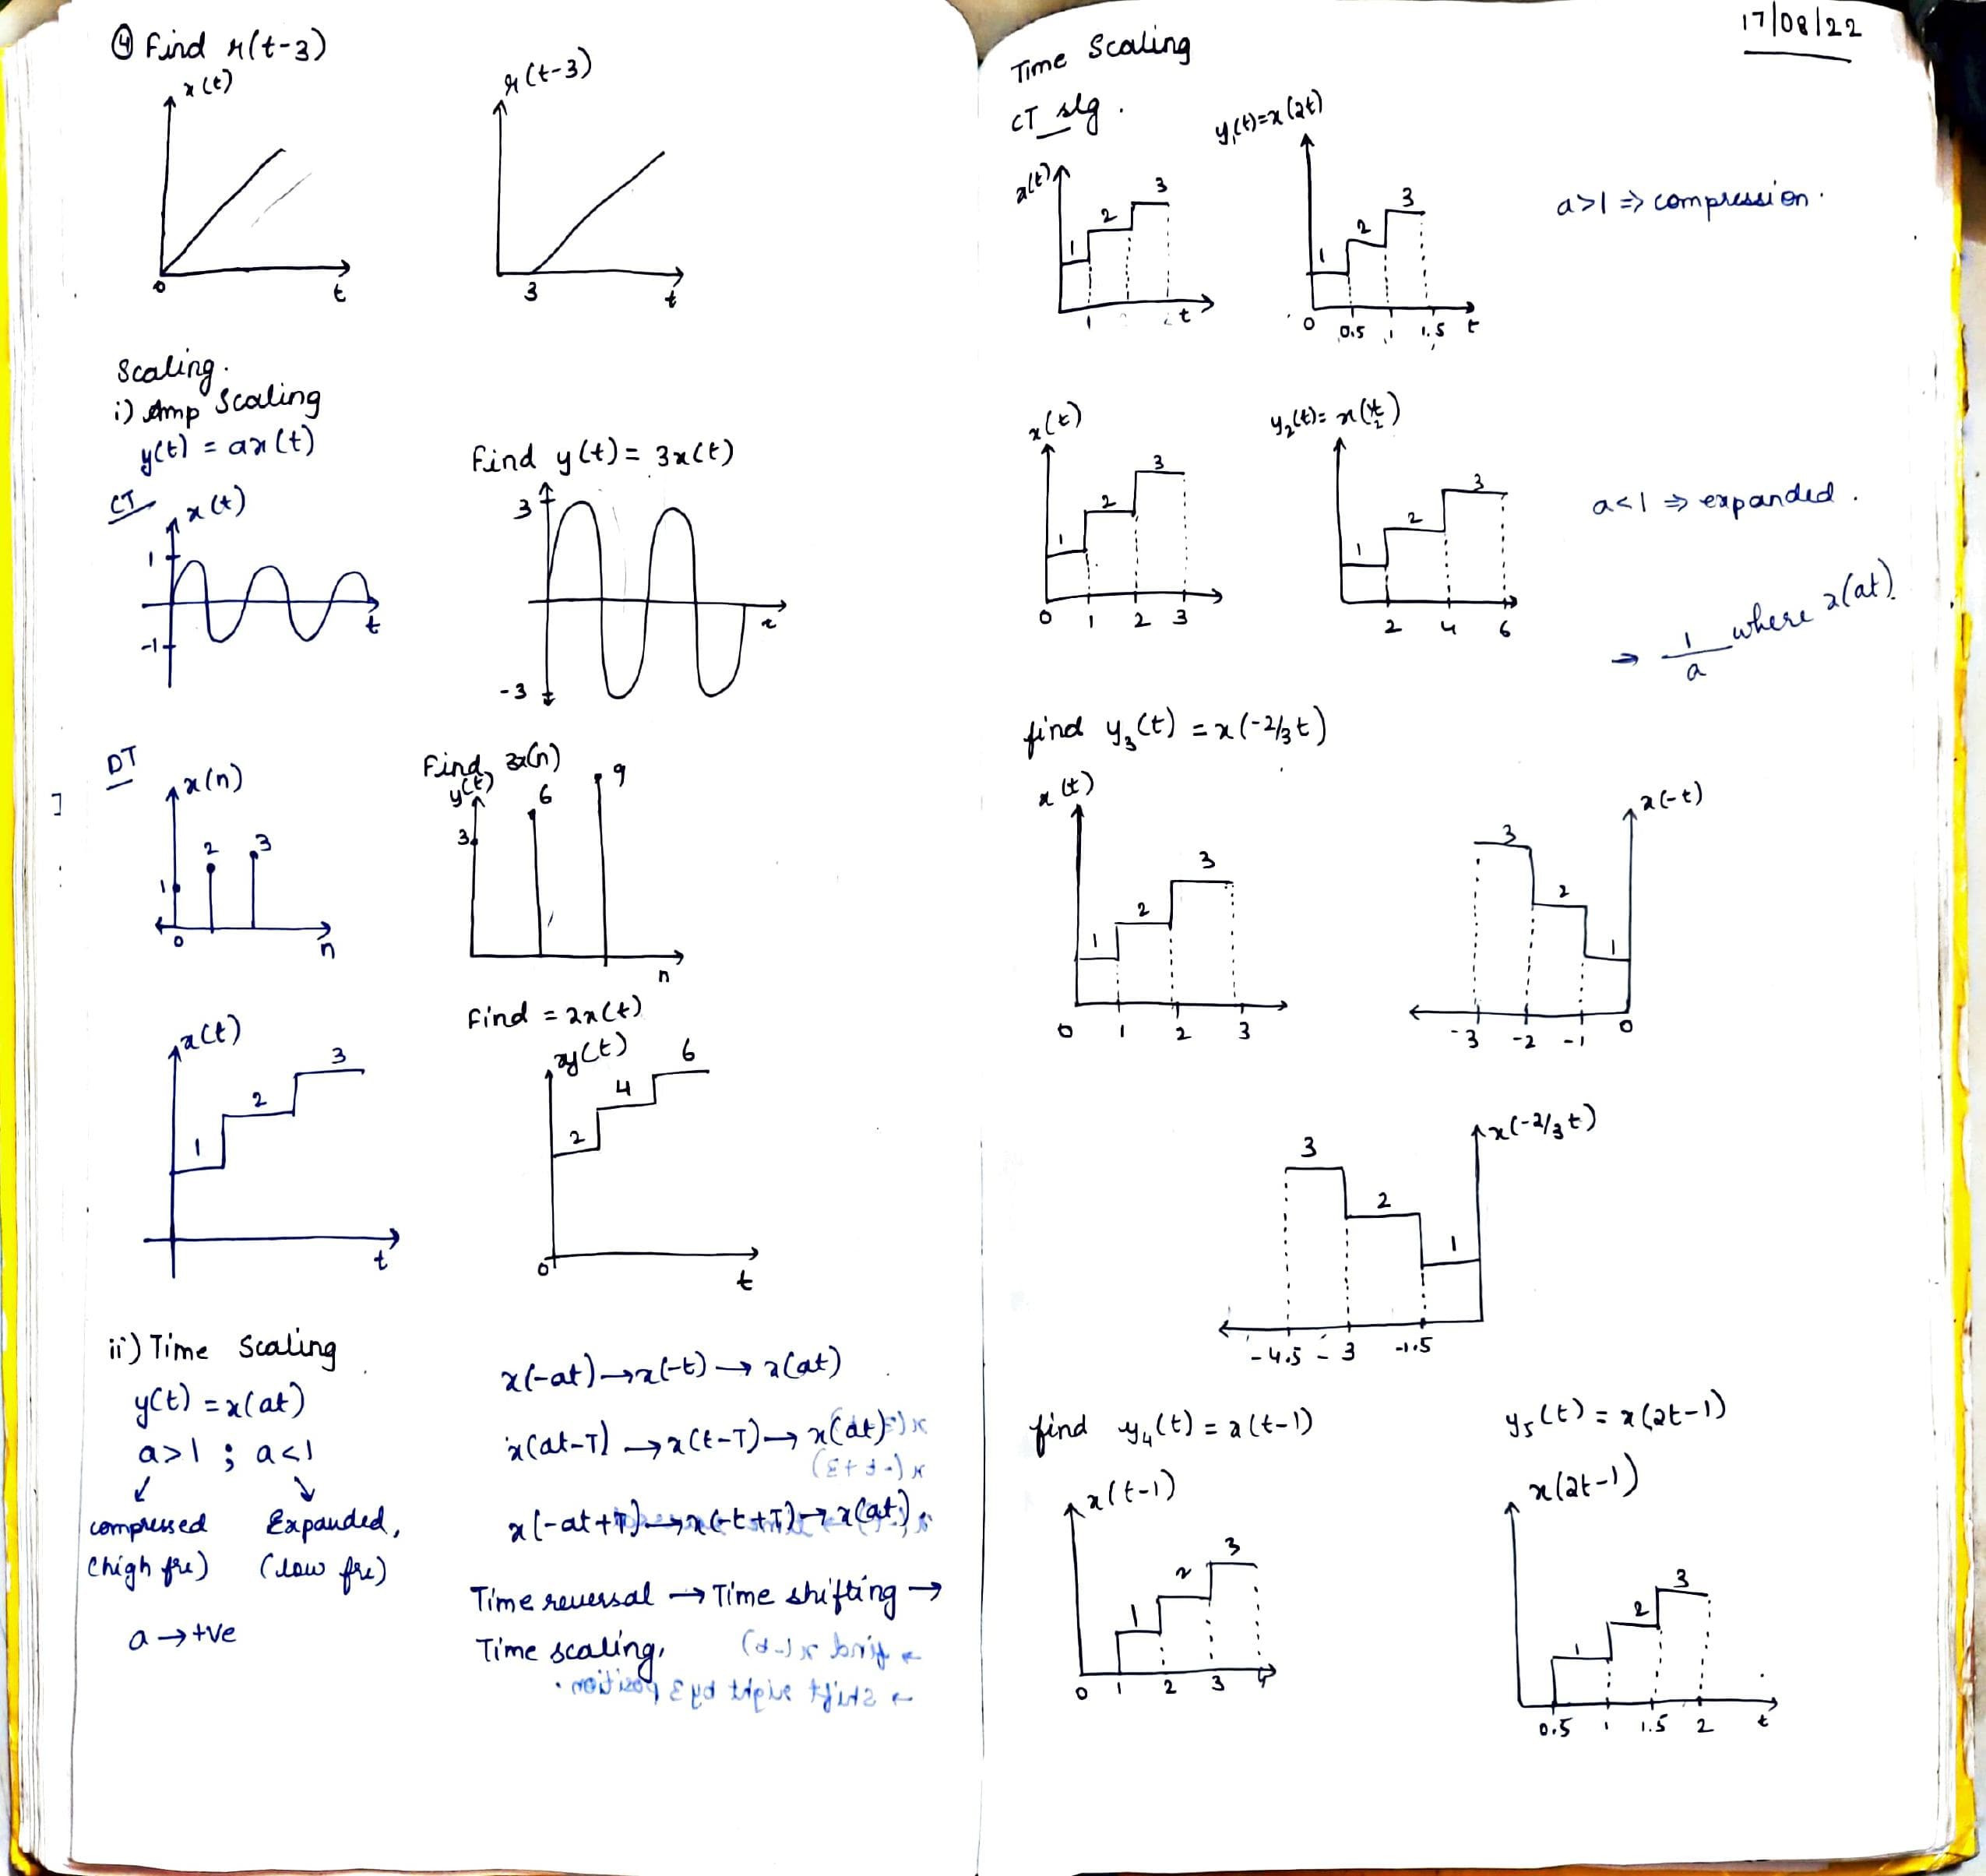 ④ Find r(t-3)
x(t)
r(t-3)
0
t
3
t
Scaling.
i) Amp Scaling
y(t) = ax(t)
CT
x(t)
1
-1
t
Find y(t) = 3x(t)
3
-3
t
DT
x(n)
1
2
3
0
n
Find 3x(n)
y(t)
3
6
9
n
x(t)
1
2
3
t
Find = 2x(t)
y(t)
2
4
6
0
t
ii) Time Scaling
y(t) = x(at)
a>1 ; a<1
compressed Expanded,
(high fre) (low fre)
a → +ve
x(-at) → x(-t) → x(at)
x(at-T) → x(t-T) → x(at)
x(-at+T) → x(-t+T) → x(at)
Time reversal → Time shifting →
Time scaling.
17/08/22
Time Scaling
CT sig.
x(t)
1
2
3
1
t
y₁(t)=x(2t)
1
2
3
0 0.5 1 1.5 t
a>1 ⇒ compression.
x(t)
1
2
3
0 1 2 3
y₂(t)= x(t/2)
1
2
3
2 4 6
a<1 ⇒ expanded.
→ 1/a where x(at)
find y₃(t) = x(-2/3t)
x(t)
1
2
3
0 1 2 3
x(-t)
3
2
1
-3 -2 -1 0
x(-2/3t)
3
2
1
-4.5 -3 -1.5
find y₄(t) = x(t-1)
x(t-1)
1
2
3
0 1 2 3 4
y₅(t) = x(2t-1)
x(2t-1)
1
2
3
0.5 1 1.5 2 t